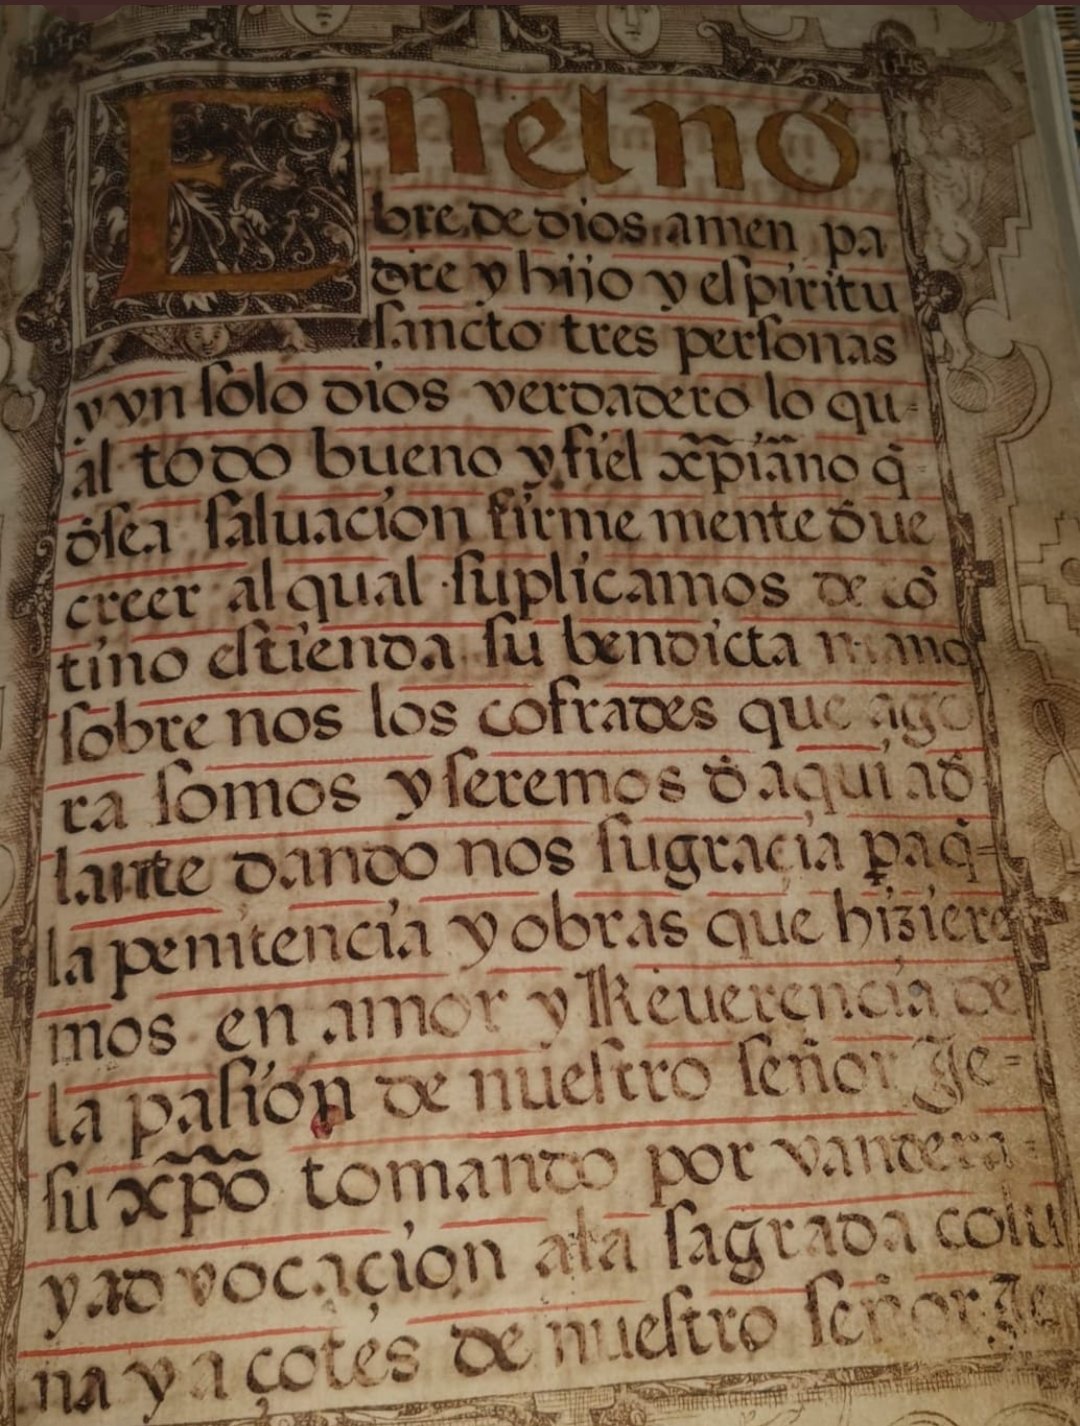 En el nõ
bre de dios amen pa
dre y hijo y eſpiritu
ſancto tres perſonas
y vn ſolo dios verdadero lo qu-
al todo bueno y fiel xp̃iãno q̃
d̃ſea ſaluacion firme mente d̃ue
creer al qual ſuplicamos de cõ
tino eſtienda ſu bendicta mano
ſobre nos los cofrades que ago
ra ſomos y ſeremos d̃ aqui ad̃
lante dando nos ſu gracia ꝑa q̃-
la penitencia y obras que hiziere
mos en amor y Reuerencia de
la paſión de nueſtro ſeñor Je-
ſu xp̃õ tomando por vandera-
y ad vocaçion ala ſagrada colu
na y açotes de nueſtro ſeñor Je